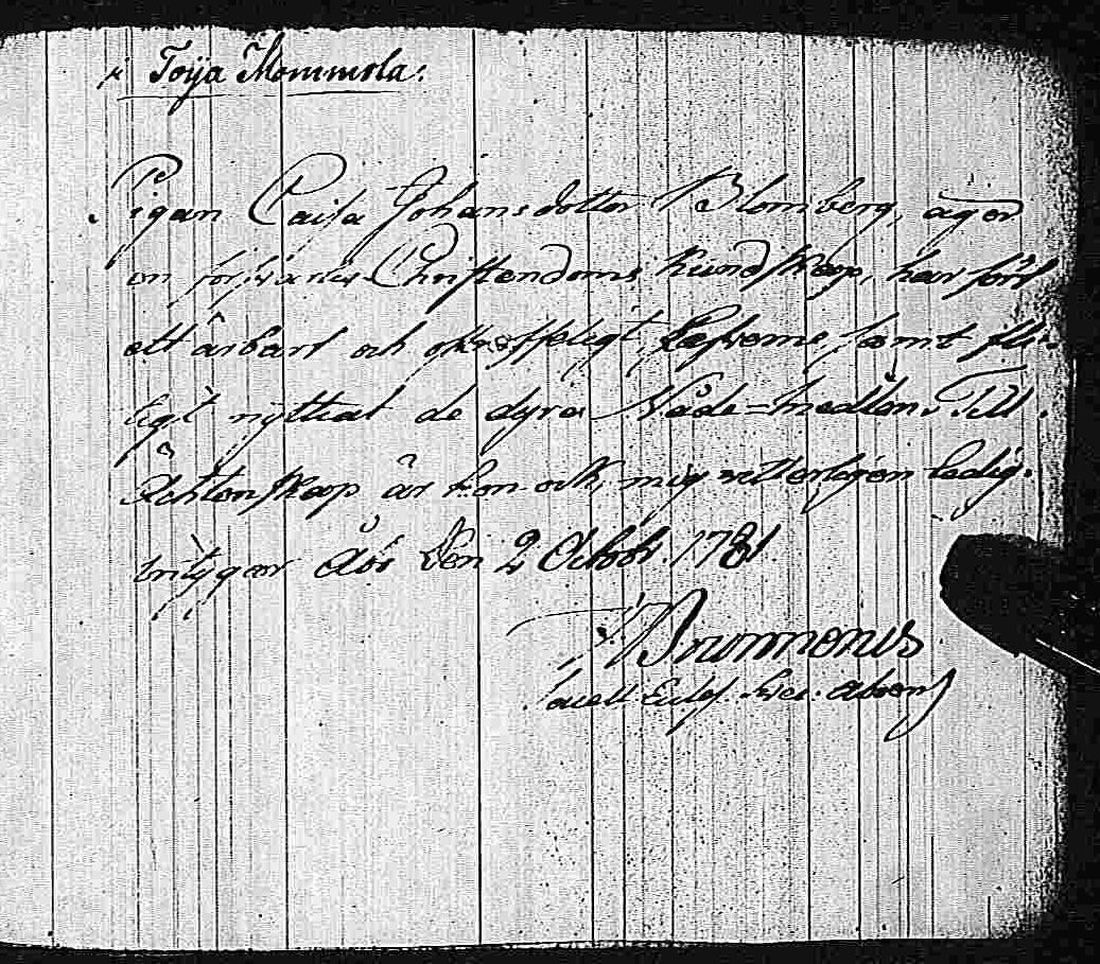 i Toija Mommola.
Pigan Caisa Johansdotter Blomberg, äger
en försvarlig Christendoms kundskap, har fört
ett ärbart och ostraffeligt Lefverne samt fli-
tigt nyttiat de dyra Nåde-medlen. Till
Ächtenskap är hon ock, mig vitterligen ledig.
bety̌gar Åbo den 2 Octobr. 1781.
Brunnerus
Sacell. Eccles. Svec. Aboens